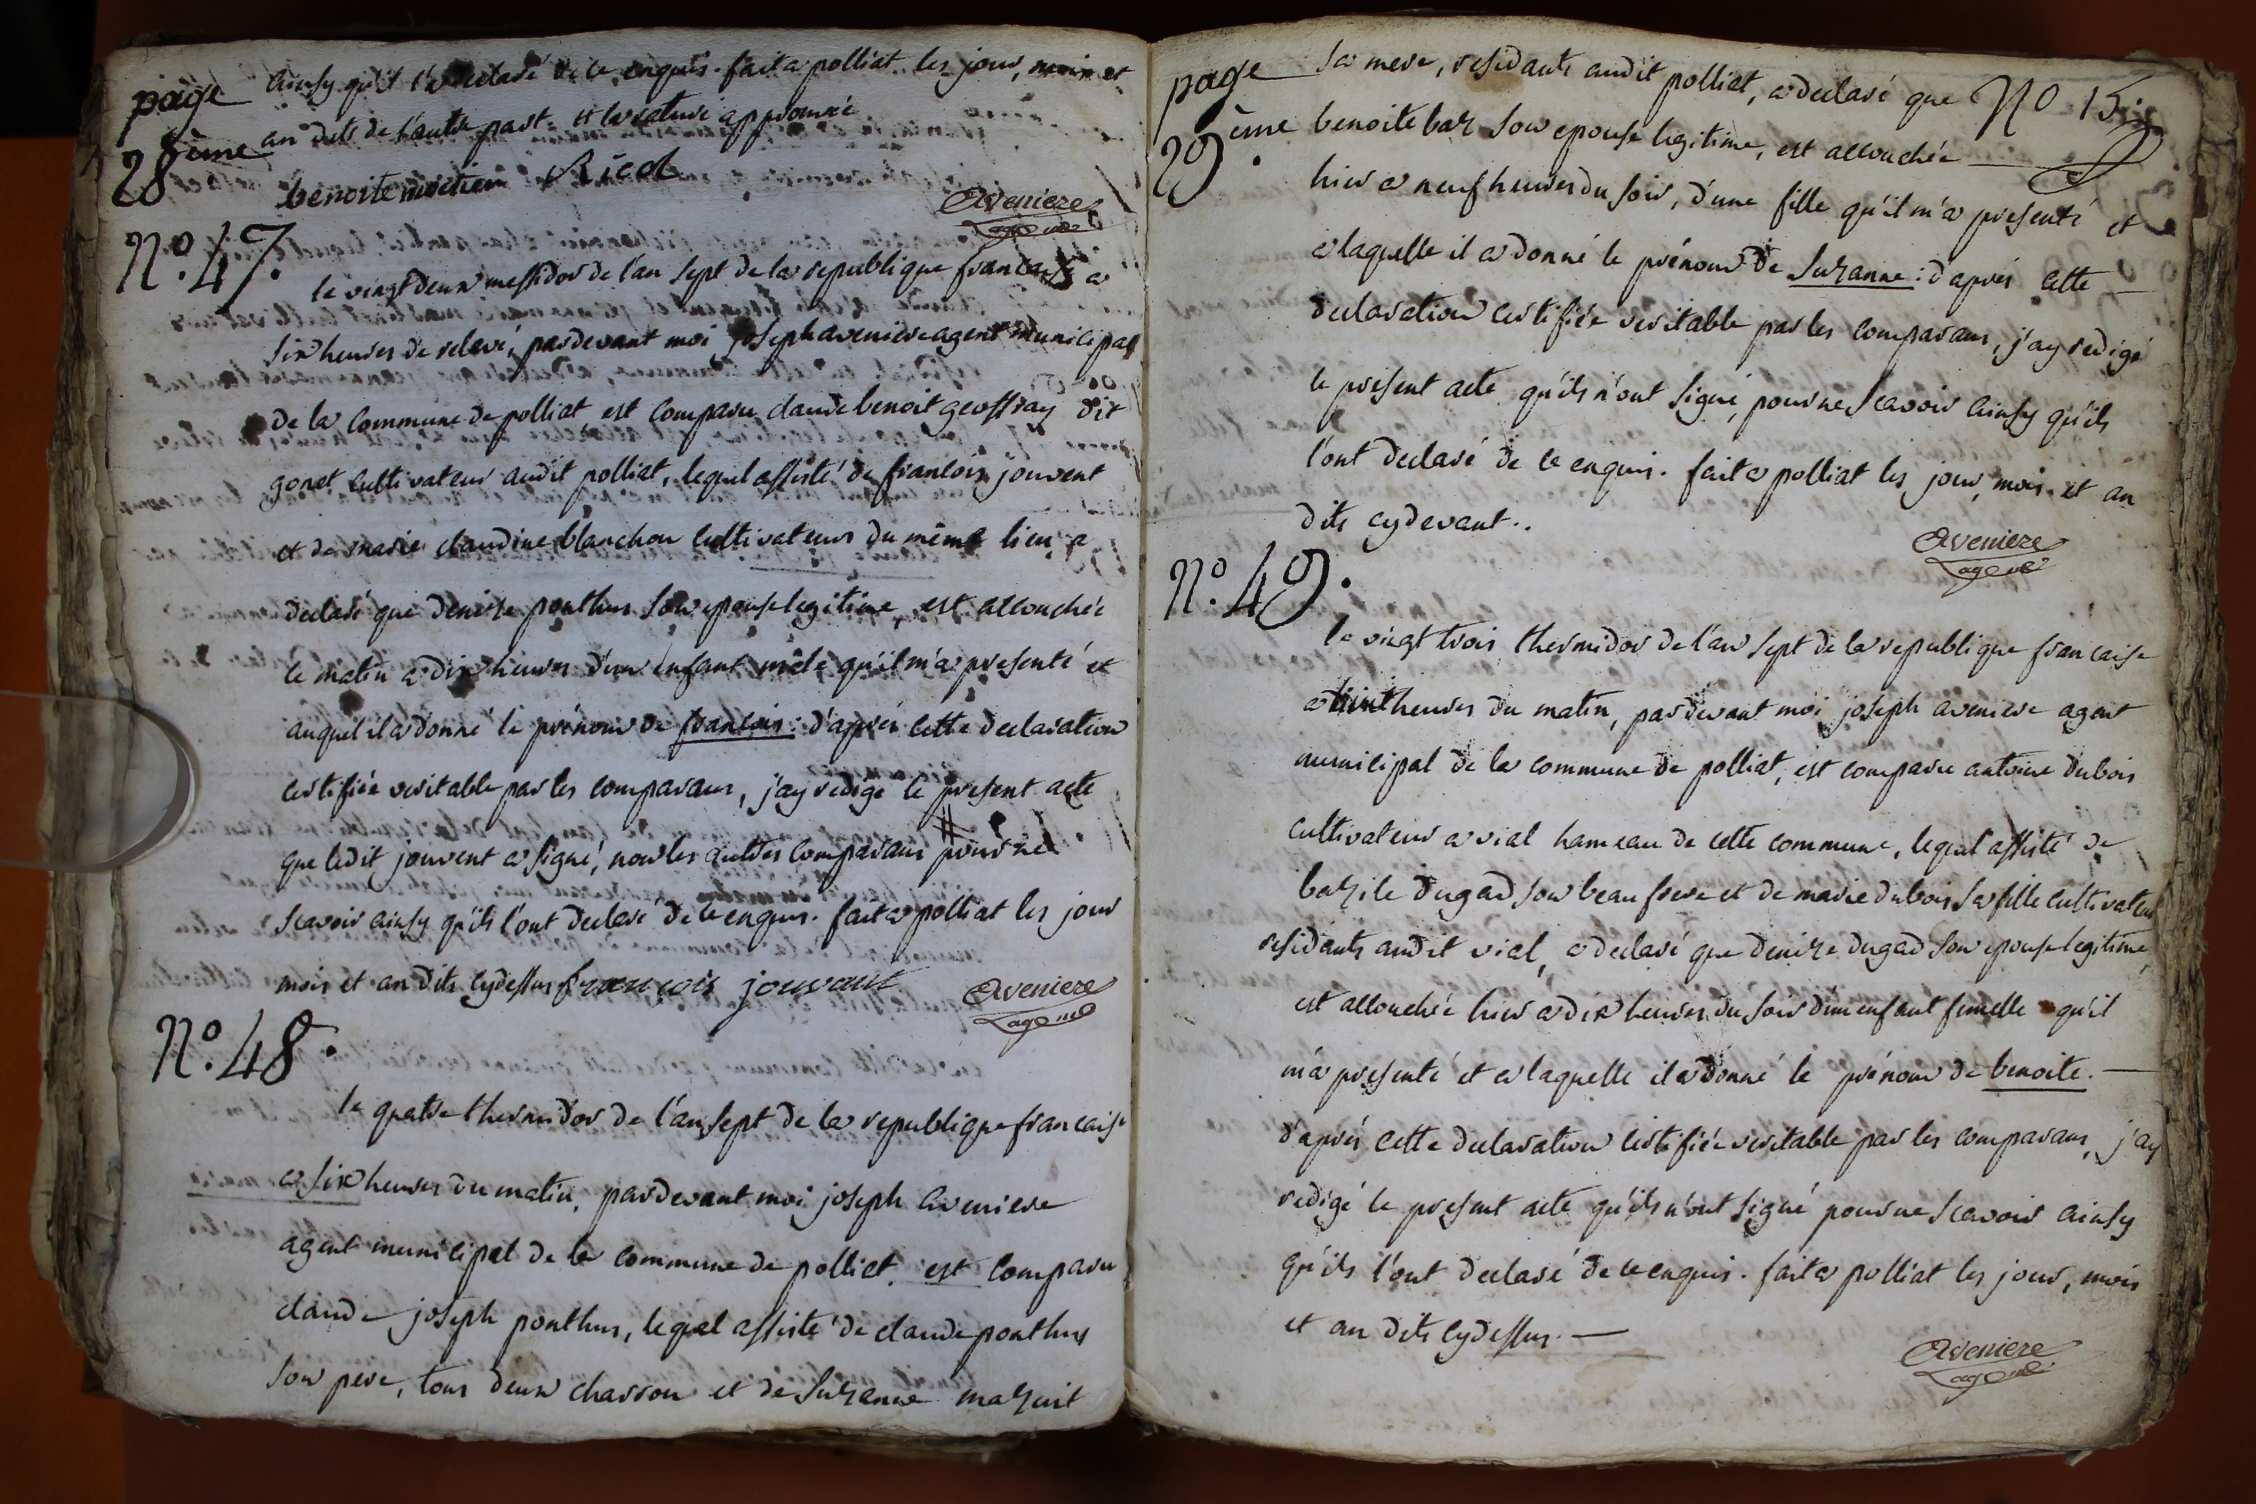 page
28ème
ainsy qu'il l'a declaré de ce enquis. fait a polliat les jour, mois et
an dits de l'autre part et la rature approuvée
benoite moitiem Ricol
Aveniere
agent
N°. 47.
le vingt deux messidor de l'an sept de la republique francaise a
six heures de relevé, pardevant moi joseph aveniere agent municipal
de la commune de polliat est comparu claude benoit geoffray dit
gonet cultivateur audit polliat, lequel assisté de francois jouvent
et de marie claudine blanchon cultivateurs du même lieu, a
declaré que denize ponthus son epouse legitime, est accouchée
ce matin a dix heures d'un enfant mâle qu'il m'a presenté et
auquel il a donné le prénom de francois: d'après cette declaration
certifiée veritable par les comparans, j'ay redigé le present acte
que ledit jouvent a signé, non les autres comparans pour ne
scavoir ainsy qu'ils l'ont declaré de ce enquis. fait a polliat les jour
mois et an dits cydessus francois jouvant
Aveniere
agent
N°. 48.
le quatre thermidor de l'an sept de la republique francaise
a six heures du matin, pardevant moi joseph aveniere
agent municipal de la commune de polliat, est comparu
claude joseph ponthus, lequel assisté de claude ponthus
son pere, tous deux charron et de Suzanne mazuit
page
29ème.
sa mere, residants audit polliat, a declaré que
N° 15
benoite baz son epouse legitime, est accouchée
hier a neuf heures du soir, d'une fille qu'il m'a presenté et
a laquelle il a donné le prénom de Suzanne: d'après cette
declaration certifiée veritable par les comparans, j'ay redigé
le present acte qu'ils n'ont signé, pour ne scavoir ainsy qu'ils
l'ont declaré de ce enquis. fait a polliat les jour, mois et an
dits cydevant..
Aveniere
agent
N°. 49.
le vingt trois thermidor de l'an sept de la republique francaise
a heures du matin, pardevant moi joseph aveniere agent
municipal de la commune de polliat, est comparu antoine dubois
cultivateur a vial hameau de cette commune, lequel assisté de
bazile dugad son beau frere et de marie dubois sa fille cultivateurs
residants audit vial, a declaré que denize dugad son epouse legitime,
est accouchée hier a dix heures du soir d'un enfant femelle qu'il
m'a presenté et a laquelle il a donné le prénom de benoite.
d'après cette declaration certifiée veritable par les comparans, j'ay
redigé le present acte qu'ils n'ont signé pour ne scavoir ainsy
qu'ils l'ont declaré de ce enquis. fait a polliat les jour, mois
et an dits cydessus.
Aveniere
agent